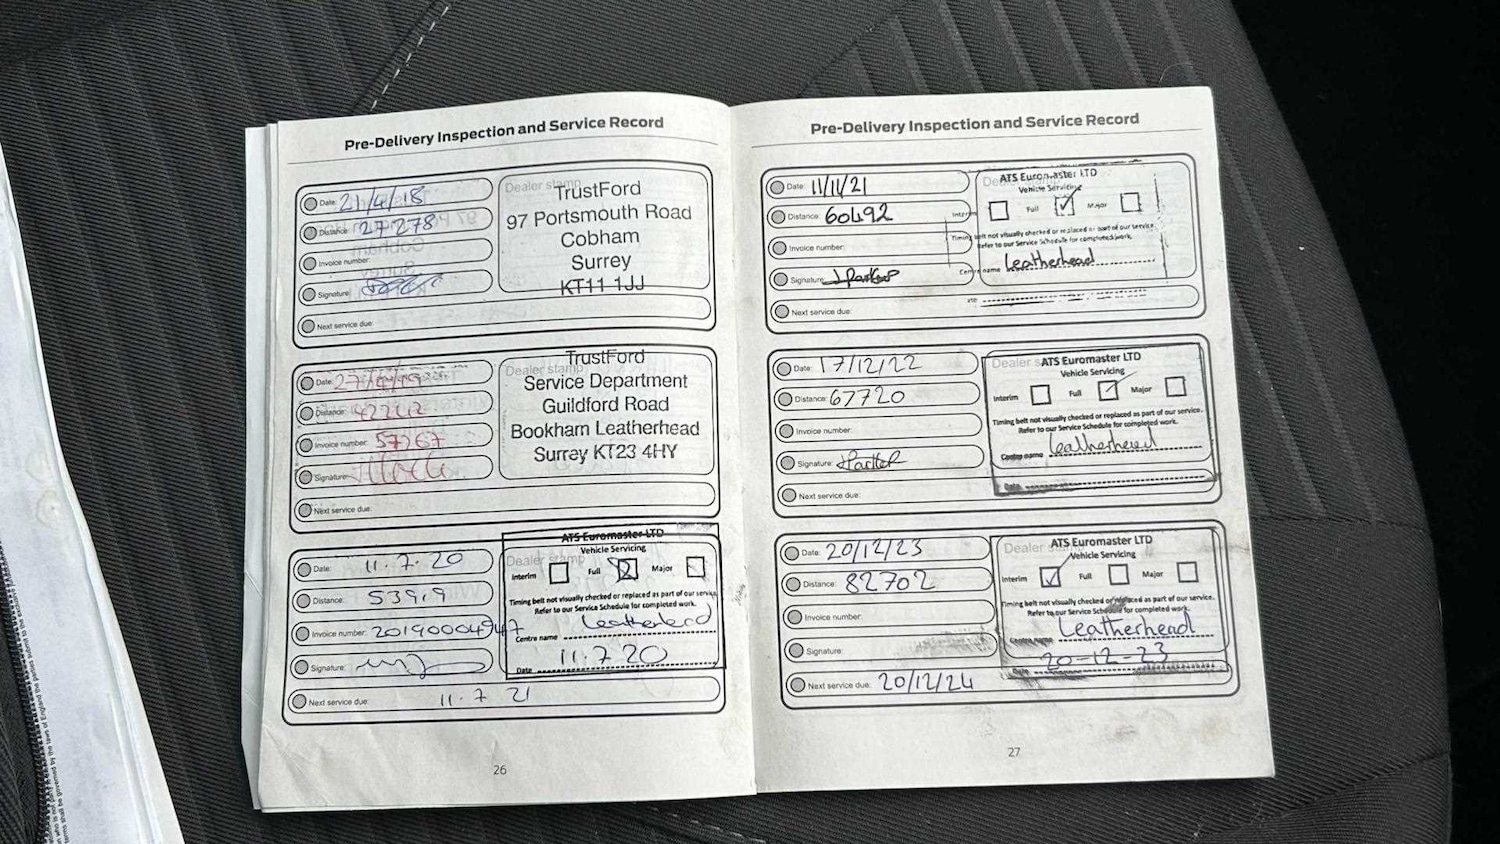 Pre-Delivery Inspection and Service Record
Date: 21/4/18
Distance: 27278
Invoice number:
Signature:
Next service due:
Dealer stamp
TrustFord
97 Portsmouth Road
Cobham
Surrey
KT11 1JJ
Date:
Distance:
Invoice number: 57267
Signature:
Next service due:
Dealer stamp
TrustFord
Service Department
Guildford Road
Bookham Leatherhead
Surrey KT23 4HY
Date: 11.7.20
Distance: 53919
Invoice number: 20190004947
Signature:
Next service due: 11.7 21
Dealer stamp
ATS Euromaster LTD
Vehicle Servicing
Interim Full Major
Timing belt not visually checked or replaced as part of our service.
Refer to our Service Schedule for completed work.
Centre name Leatherhead
Date 11.7 20
26
Pre-Delivery Inspection and Service Record
Date: 11/11/21
Distance: 60492
Invoice number:
Signature: J Parker
Next service due:
ATS Euromaster LTD
Vehicle Servicing
Interim Full Major
Timing belt not visually checked or replaced as part of our service.
Refer to our Service Schedule for completed work.
Centre name Leatherhead
Date: 17/12/22
Distance: 67720
Invoice number:
Signature: J Parker
Next service due:
Dealer
ATS Euromaster LTD
Vehicle Servicing
Interim Full Major
Timing belt not visually checked or replaced as part of our service.
Refer to our Service Schedule for completed work.
Centre name Leatherhead
Date
Date: 20/12/23
Distance: 82702
Invoice number:
Signature:
Next service due: 20/12/24
Dealer
ATS Euromaster LTD
Vehicle Servicing
Interim Full Major
Timing belt not visually checked or replaced as part of our service.
Refer to our Service Schedule for completed work.
Centre name Leatherhead
Date 20-12-23
27